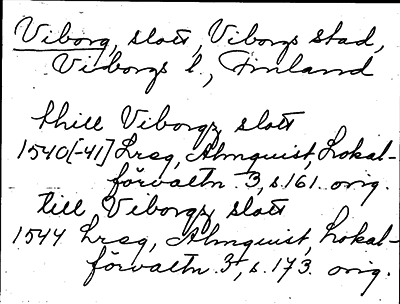 Viborg, slott, Viborgs stad,
Viborgs l., Finland
thill Viborgz slott
1540[-41] Lrsg, Almquist, Lokal-
förvaltn. 3, s. 161. orig.
till Viborgz slott
1544 Lrsg, Almquist, Lokal-
förvaltn. 3, s. 173. orig.